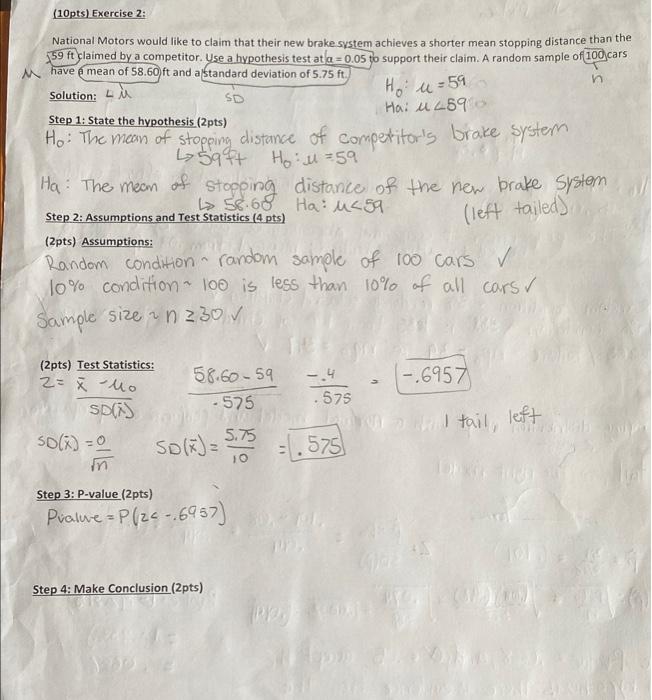 (10pts) Exercise 2:
National Motors would like to claim that their new brake system achieves a shorter mean stopping distance than the
59 ft claimed by a competitor. Use a hypothesis test at α = 0.05 to support their claim. A random sample of 100 cars
have a mean of 58.60 ft and a standard deviation of 5.75 ft.
M
SD
n
H₀: μ = 59
Ha: μ < 59
Solution:
Step 1: State the hypothesis (2pts)
H₀: The mean of stopping distance of competitor's brake system
↳ 59 ft H₀: μ = 59
Ha: The mean of stopping distance of the new brake system
↳ 58.60 Ha: μ < 59 (left tailed)
Step 2: Assumptions and Test Statistics (4 pts)
(2pts) Assumptions:
Random condition ~ random sample of 100 cars ✓
10% condition ~ 100 is less than 10% of all cars ✓
Sample size ~ n ≥ 30 ✓
(2pts) Test Statistics:
Z = x̄ - μ₀ / SD(x̄) 58.60 - 59 / .575 -.4 / .575 = -.6957
1 tail, left
SD(x̄) = σ / √n SD(x̄) = 5.75 / 10 = .575
Step 3: P-value (2pts)
Pvalue = P(z < -.6957)
Step 4: Make Conclusion (2pts)